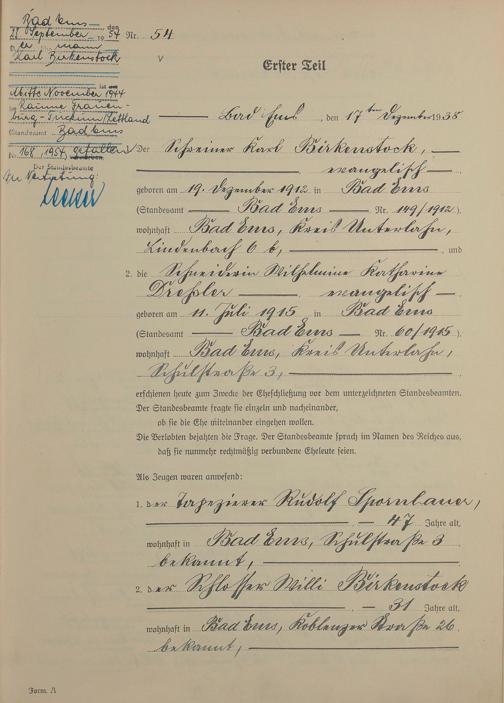 Bad Ems den
11 September 1954
Der Ehemann
Karl Birkenstock
ist am
Mitte November 1944
im Raume Frauen-
burg-Tuckum/Lettland
(Standesamt Bad Ems
Nr. 168/1954) gefallen/
Der Standesbeamte
In Vertretung:
Nr. 54
Erster Teil
Bad Ems, den 17ten Dezember 1938
Der Schreiner Karl Birkenstock,
evangelisch
geboren am 19. Dezember 1912 in Bad Ems
(Standesamt Bad Ems Nr. 149/1912),
wohnhaft Bad Ems, Kreis Unterlahn,
Lindenbach 6 b, und
2. die Schneiderin Wilhelmine Katharine
Dressler evangelisch
geboren am 11. Juli 1915 in Bad Ems
(Standesamt Bad Ems Nr. 60/1915)
wohnhaft Bad Ems, Kreis Unterlahn,
Schulstraße 3,
erschienen heute zum Zwecke der Eheschließung vor dem unterzeichneten Standesbeamten.
Der Standesbeamte fragte sie einzeln und nacheinander,
ob sie die Ehe miteinander eingehen wollen.
Die Verlobten bejahten die Frage. Der Standesbeamte sprach im Namen des Reiches aus,
daß sie nunmehr rechtmäßig verbundene Eheleute seien.
Als Zeugen waren anwesend:
1. der Tapezierer Rudolf Spornhauer,
47 Jahre alt,
wohnhaft in Bad Ems, Schulstraße 3
bekannt,
2. der Schlosser Willi Birkenstock
31 Jahre alt,
wohnhaft in Bad Ems, Koblenzer Straße 26
bekannt,
Form. A